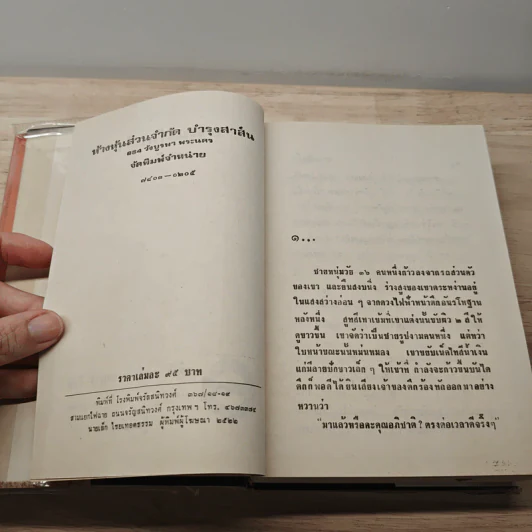 ห้างหุ้นส่วนจำกัด บำรุงสาส์น
๑๓๔ วังบูรพา พระนคร
จัดพิมพ์จำหน่าย
ราคาเล่มละ ๙๕ บาท
พิมพ์ที่ โรงพิมพ์จรัลสนิทวงศ์ ๓๖๗/๑๔-๑๙
สามแยกไฟฉาย ถนนจรัญสนิทวงศ์ กรุงเทพฯ โทร.
นายเล็ก ไชยเทอดธรรม ผู้พิมพ์ผู้โฆษณา ๒๕๒๒
๑...
ชายหนุ่มวัย ๓๖ คนหนึ่งก้าวลงจากรถส่วนตัว
ของเขา และยืนสงบนิ่ง ร่างสูงของเขาตระหง่านอยู่
ในแสงสว่างอ่อน ๆ จากดวงไฟฟ้าหน้าตึกอันรโหฐาน
หลังหนึ่ง สูทสีเทาเข้มที่เขาแต่งนั้นขับผิว ๒ สีให้
ดูขาวขึ้น เขาจัดว่าเป็นชายรูปงามคนหนึ่ง แต่ทว่า
ใบหน้าขณะนั้นหม่นหมอง เขาขยับเน็คไทสีน้ำเงิน
ให้เข้าที่ กำลังจะก้าวขึ้นบันได
ตึกก็พอดีได้ยินเสียงเจ้าของตึกร้องทักออกมาอย่าง
หวานว่า
"มาแล้วหรือคะคุณอภิชาติ ? ตรงต่อเวลาดีจริงๆ"